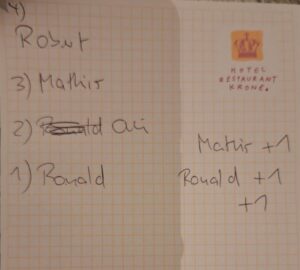 4)
Robert
3) Mathis
2) Oli
1) Ronald
HOTEL
RESTAURANT
KRONE.
Mathis +1
Ronald +1
+1